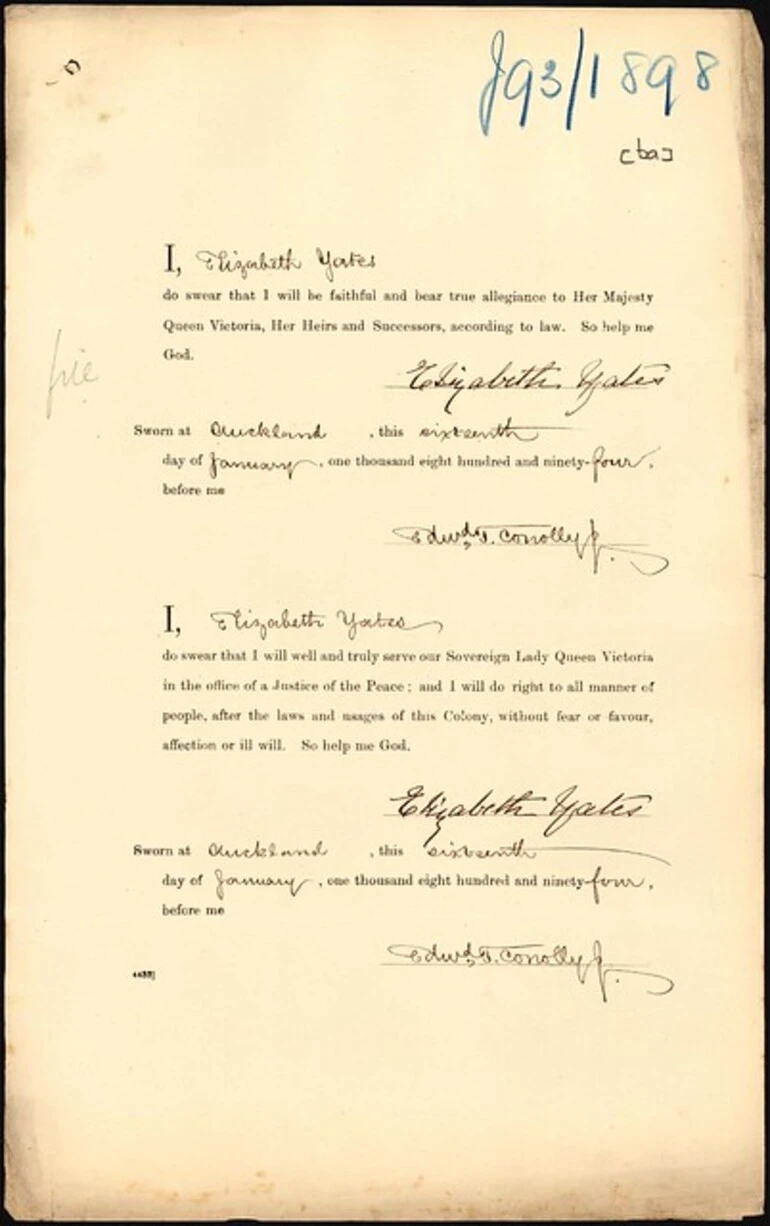 J93/1898
[ba]
I, Elizabeth Yates
do swear that I will be faithful and bear true allegiance to Her Majesty
Queen Victoria, Her Heirs and Successors, according to law. So help me
God.
file
Elizabeth Yates
Sworn at Auckland, this sixteenth
day of January, one thousand eight hundred and ninety-four,
before me
Edwd. T. Conolly J.
I, Elizabeth Yates
do swear that I will well and truly serve our Sovereign Lady Queen Victoria
in the office of a Justice of the Peace; and I will do right to all manner of
people, after the laws and usages of this Colony, without fear or favour,
affection or ill will. So help me God.
Elizabeth Yates
Sworn at Auckland, this sixteenth
day of January, one thousand eight hundred and ninety-four,
before me
Edwd. T. Conolly J.